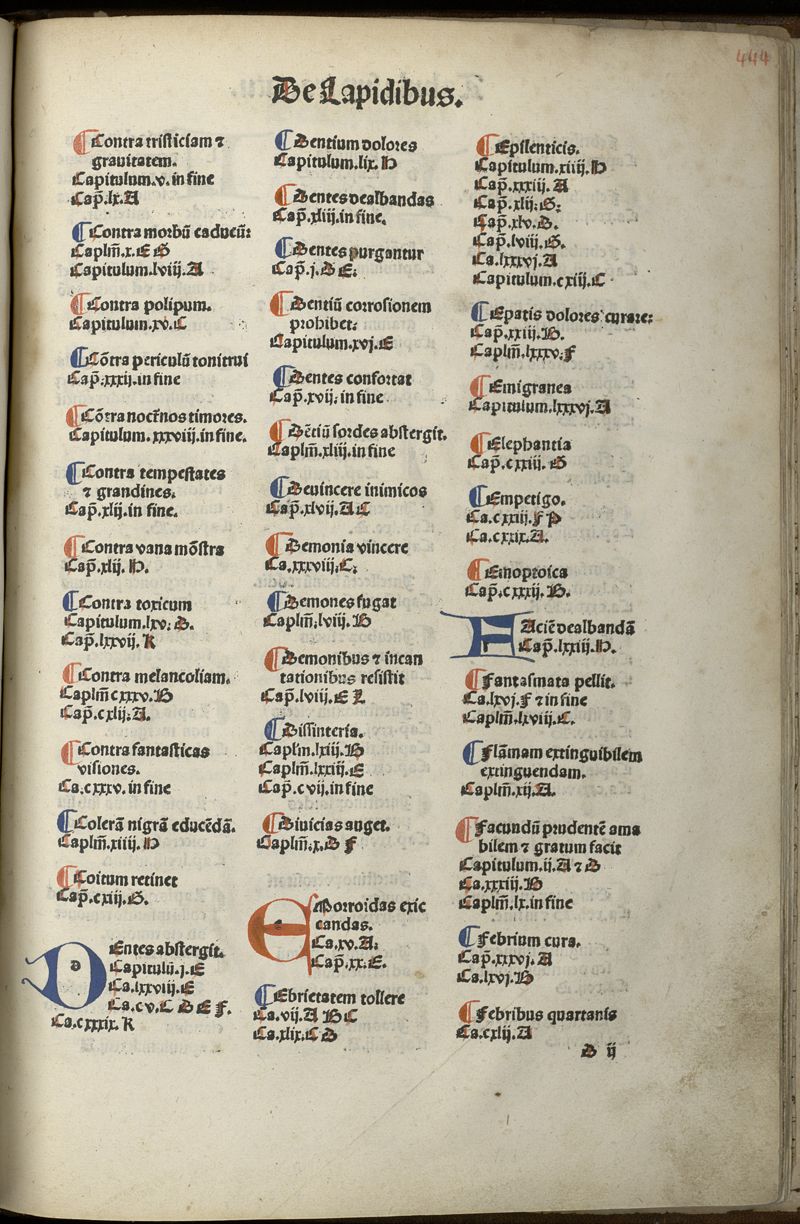 444
De Lapidibus.
¶Contra tristiciam ⁊
grauitatem.
Capitulum.v.in fine
Cap̄.lx.A
¶Contra morbū caducū:
Caplm̄.x.E G
Capitulum.lviij.A
¶Contra polipum.
Capitulum.xv.C
¶Cōtra periculū tonitrui
Cap̄.xxxij.in fine
¶Cōtra noct̄nos timores.
Capitulum.xxxviij.in fine.
¶Contra tempestates
⁊ grandines.
Cap̄.xlij.in fine.
¶Contra vana mōstra
Cap̄.xlij.H.
¶Contra toxicum
Capitulum.lxv.D.
Cap̄.lxxvij.K
¶Contra melancoliam.
Caplm̄ cxxxv.B
Cap̄.cxlij.A.
¶Contra fantasticas
visiones.
Ca.cxxxv.in fine
¶Colerā nigrā educēdā.
Caplm̄.xiiij.H
¶Coitum retinet
Cap̄.cxij.G.
DEntes abstergit.
Capitulū.j.E
Ca.lxxviij.E
Ca.cv.C D E F.
Ca.cxxxix.K
¶Dentium dolores
Capitulum.lix.H
¶Dentes dealbandas
Cap̄.xliij.in fine.
¶Dentes purgantur
Cap̄.j.D E.
¶Dentiū corrosionem
prohibet.
Capitulum.xvj.E
¶Dentes confortat
Cap̄.xvij.in fine
¶Dētiū sordes abstergit.
Caplm̄.xliij.in fine
¶Deuincere inimicos
Cap̄.xlvij.A C
¶Demonia vincere
Ca.xxxviij.C.
¶Demones fugat
Caplm̄.lviij.B
¶Demonibus ⁊ incan
tationibus resistit
Cap̄.lviij.E L
¶Dissinteria.
Caplm̄.lxiij.B
Caplm̄.lxxiij.E
Cap̄.cvij.in fine
¶Diuicias auget.
Caplm̄.x.D F
EMorroidas exic
candas.
Ca.xv.A.
Cap̄.xx.E.
¶Ebrietatem tollere
Ca.vij.A B C
Ca.xlix.C D
¶Epilenticis.
Capitulum.xiiij.H
Cap̄.xxxiij.A
Cap̄.xlij.G.
Cap̄.xlv.D.
Cap̄.lviij.G.
Ca.lxxvj.A
Capitulum.cxiij.C
¶Epatis dolores curare:
Cap̄.xxiij.B.
Caplm̄.lxxxv.F
¶Emigranea
Capitulum.lxxxvj.A
¶Elephantia
Cap̄.cxxiij.G
¶Empetigo.
Ca.cxxiij.F P
Ca.cxxix.A.
¶Emoptoica
Cap̄.cxxxij.B.
FAciē dealbandā
Cap̄.lxxiij.H.
¶Fantasmata pellit.
Ca.lxvj.F ⁊ in fine
Caplm̄.lxviij.C.
¶Flāmam extinguibilem
extinguendam.
Caplm̄.xij.A.
¶Facundū prudentē ama
bilem ⁊ gratum facit
Capitulum.ij.A ⁊ D
Ca.xxxiij.B
Caplm̄.lx.in fine
¶Febrium cura.
Cap̄.xxxvj.A
Ca.lxvj.B
¶Febribus quartanis
Ca.cxlij.A
D ij